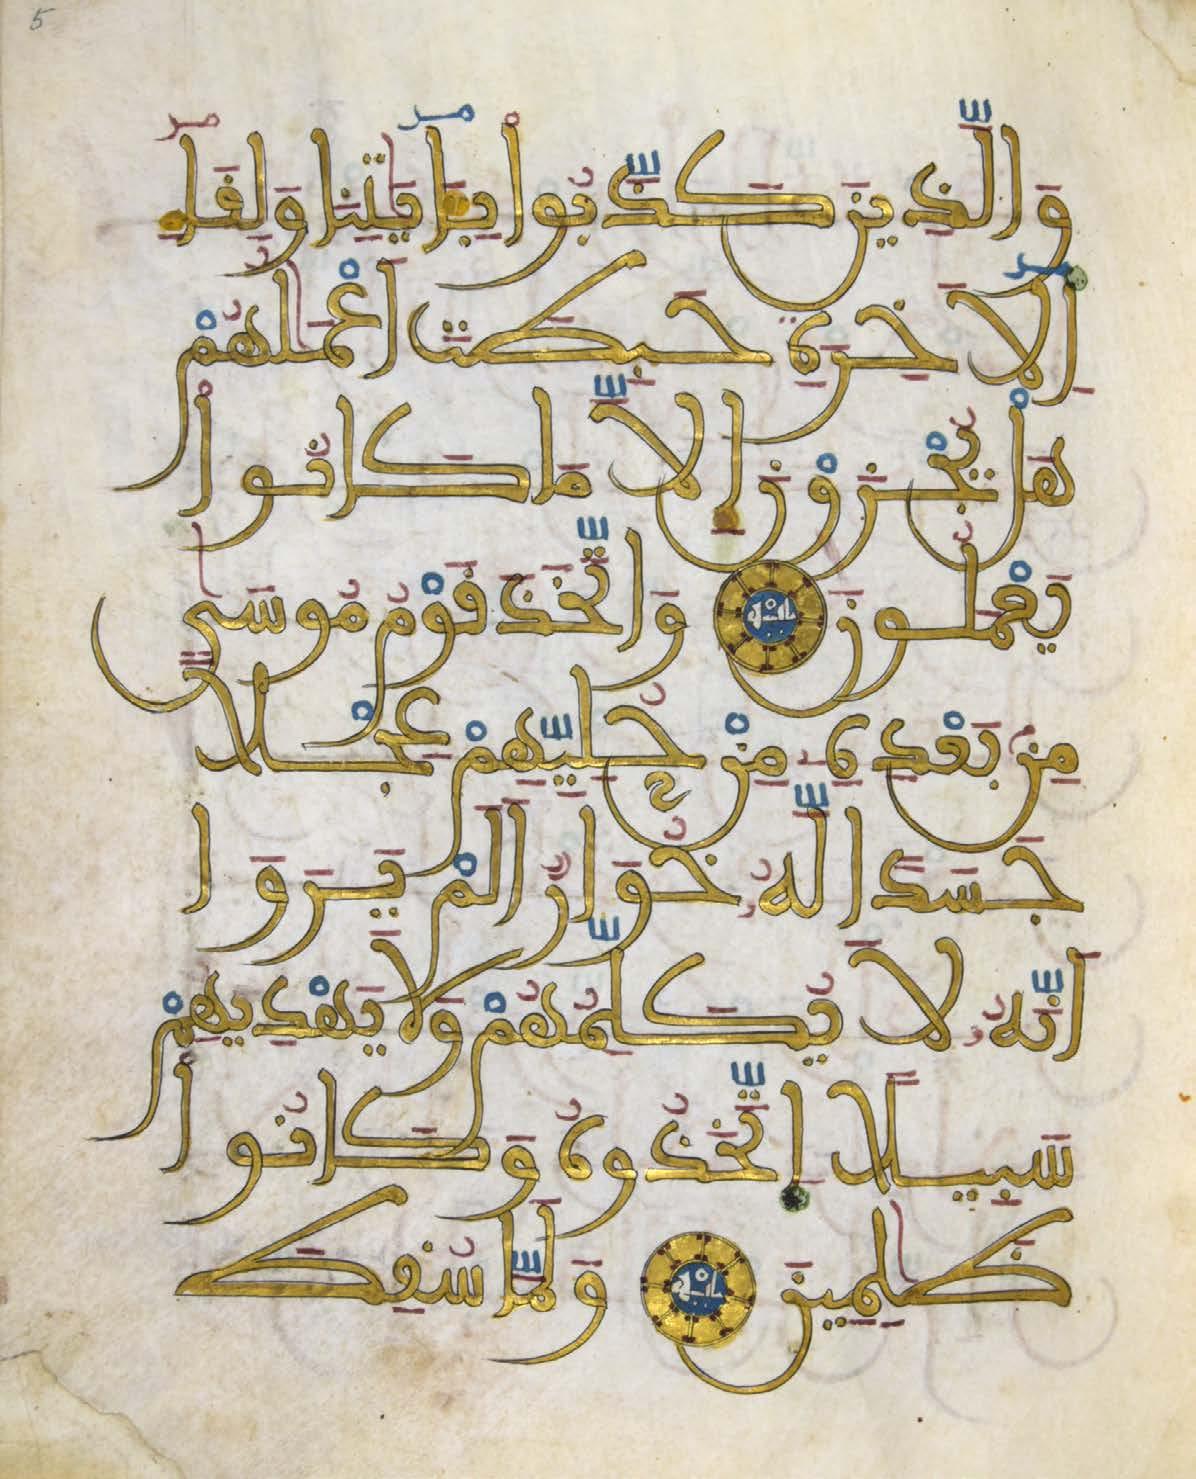 5
وَالَّذِينَ كَذَّبُوا بِـَٔايَٰتِنَا وَلِقَا
اِ۬لَاخِرَةِ حَبِطَتَ اَعْمَٰلُهُمْ
هَلْ يُجْزَوْنَ إِلَّا مَا كَانُوا
يَعْمَلُونَ وَاتَّخَذَ قَوْمُ مُوسَىٰ
مِنۢ بَعْدِهِۦ مِنْ حُلِيِّهِمْ عِجْلًا
جَسَدًا لَّهُۥ خُوَارٌ اَلَمْ يَرَوَا
اَنَّهُۥ لَا يُكَلِّمُهُمْ وَلَا يَهْدِيهِمْ
سَبِيلًا اِتَّخَذُوهُ وَكَانُوا
ظَٰلِمِينَ وَلَمَّا سُقِطَ